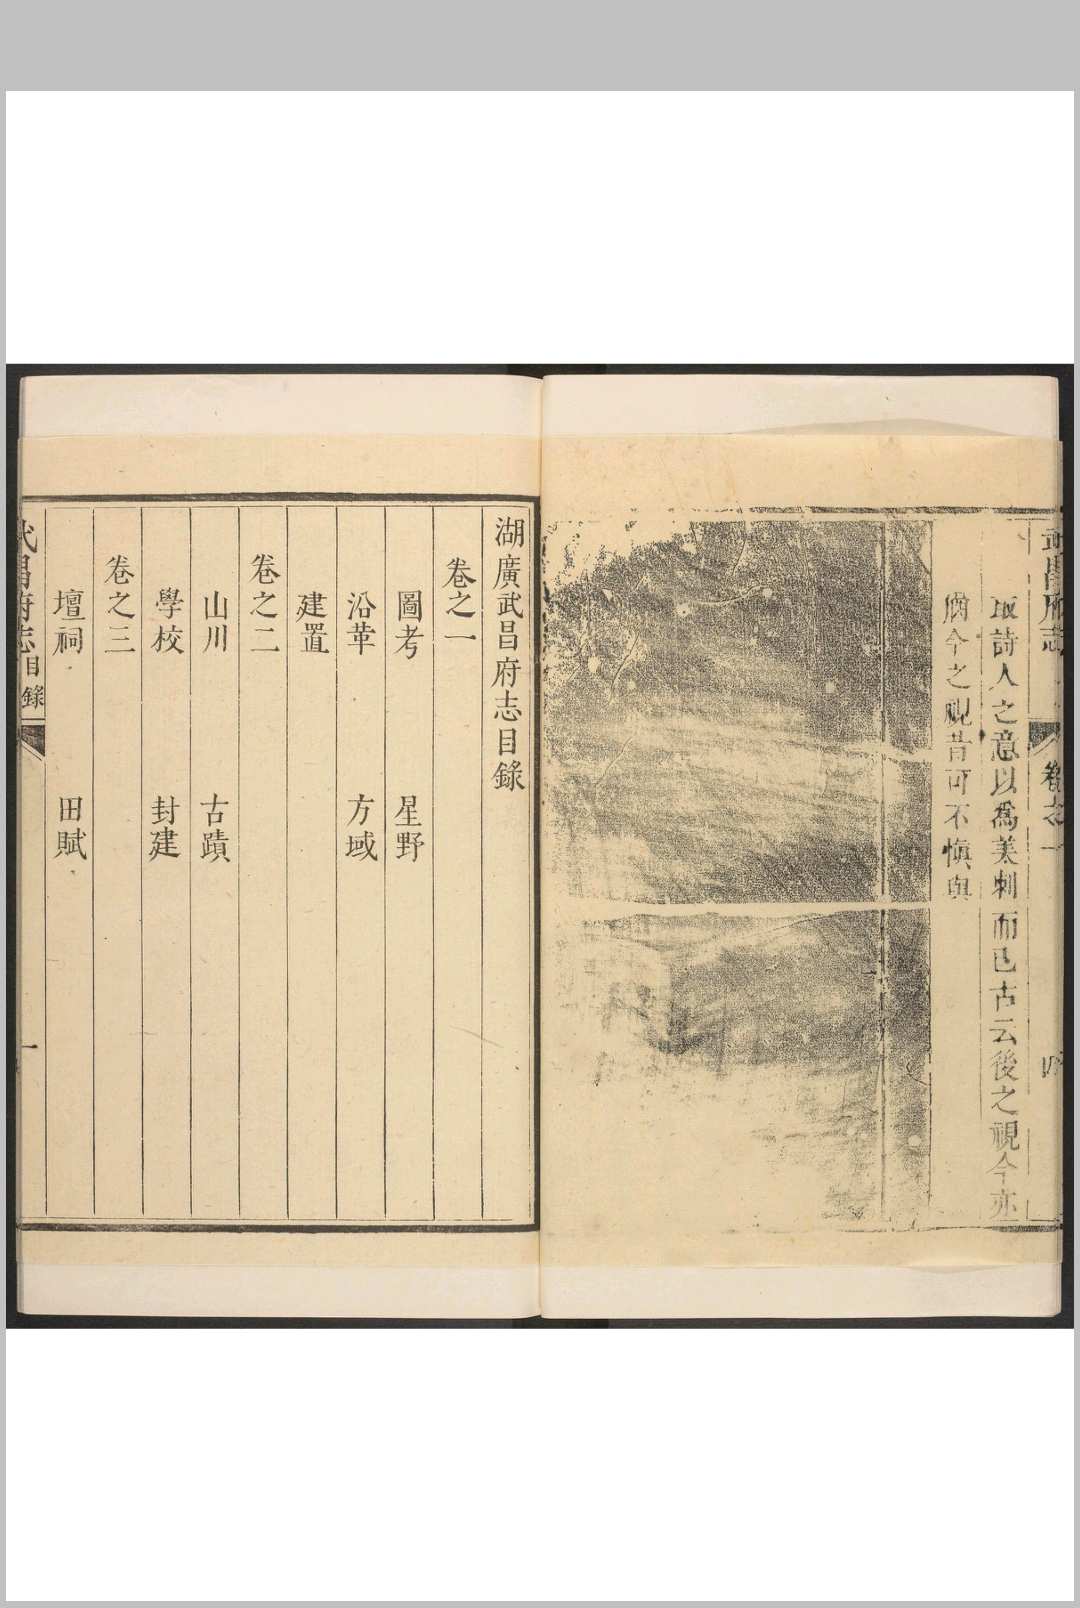 武昌府志
卷之一
取詩人之意以爲美刺而已古云後之視今亦
猶今之視昔可不愼與
湖廣武昌府志目錄
卷之一
圖考 星野
沿革 方域
建置
卷之二
山川 古蹟
學校 封建
卷之三
壇祠 田賦
武昌府志目錄
一